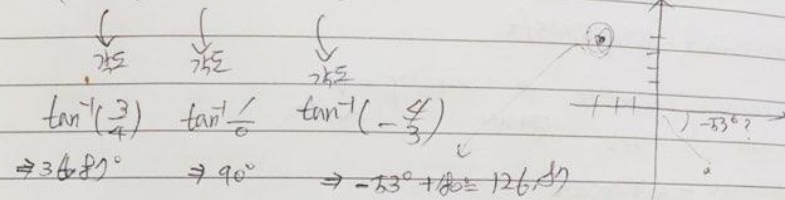 각도 각도 각도
tan⁻¹(3/4) tan⁻¹ 1/0 tan⁻¹(-4/3)
-53°?
⇒ 36.87° ⇒ 90° ⇒ -53° + 180° = 126.87